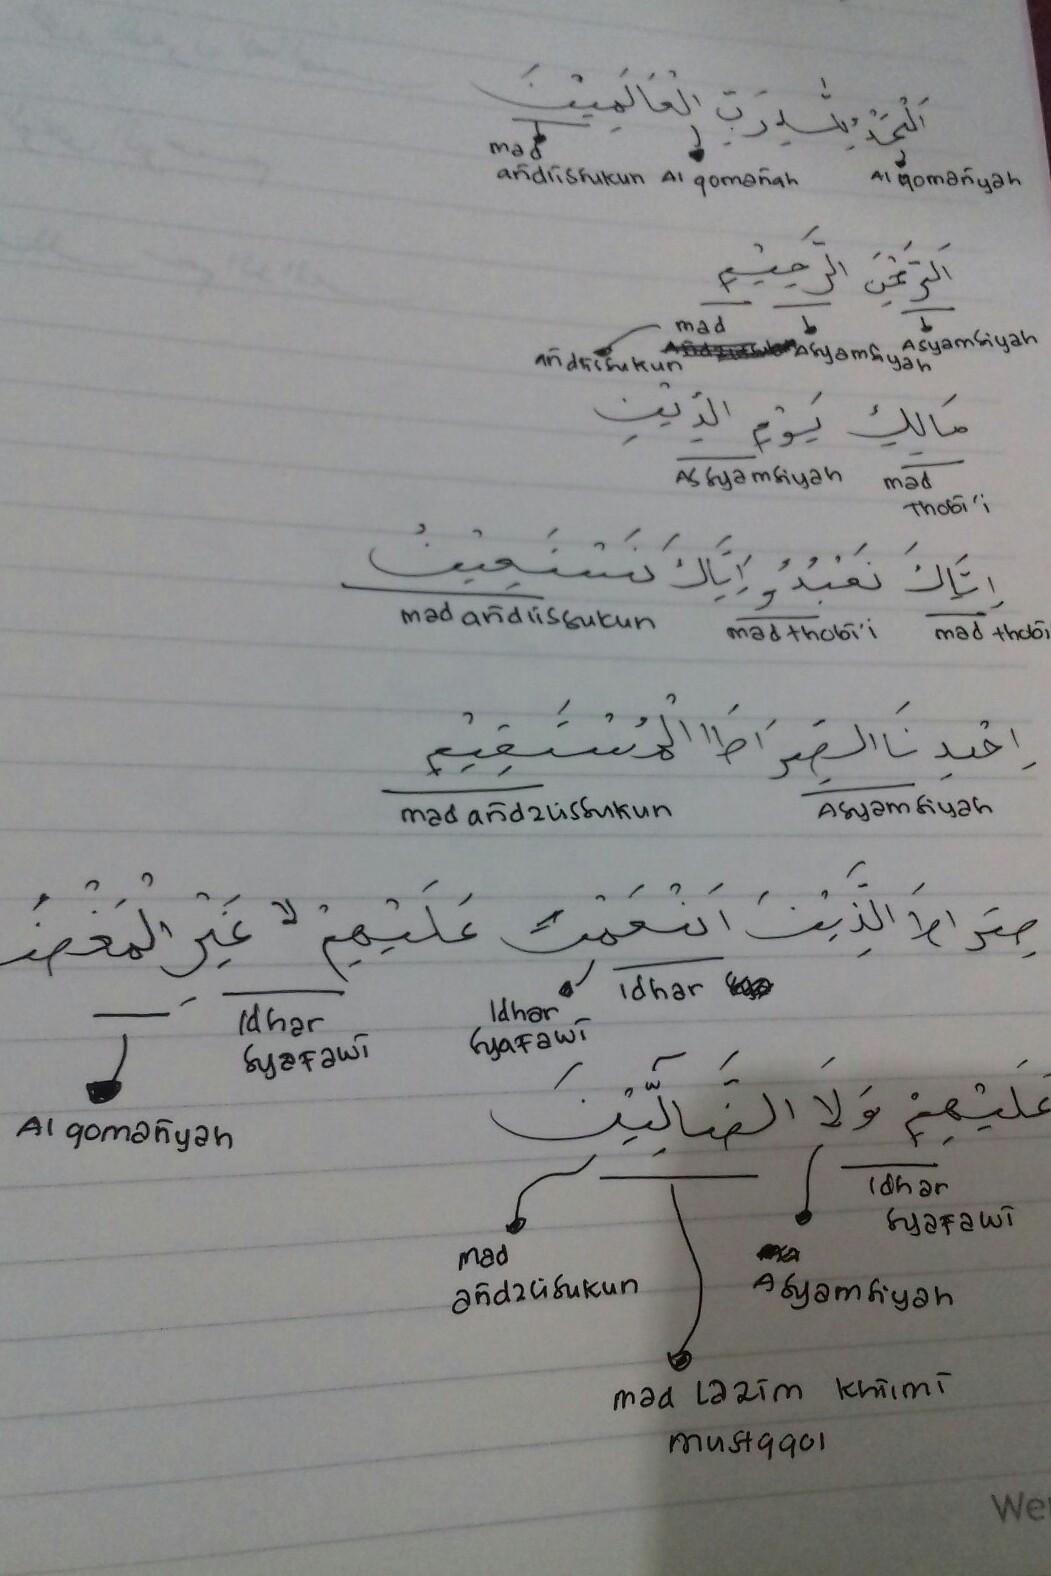 اَلْحَمْدُ لِلّٰهِ رَبِّ الْعَالَمِيْنَ
mad
aridlissukun Al qomariah Al qomariyah
اَلرَّحْمٰنِ الرَّحِيْمِ
mad
aridlissukun Asyamsiyah Asyamsiyah
مَالِكِ يَوْمِ الدِّيْنِ
Assyamsiyah mad
thobi'i
اِيَّاكَ نَعْبُدُ وَ اِيَّاكَ نَسْتَعِيْنُ
mad aridlissukun mad thobi'i mad thobi
اِهْدِ نَا الصِّرَاطَ الْمُسْتَقِيْمِ
mad aridzlissukun Asyamsiyah
صِرَاطَ الَّذِيْنَ اَنْعَمْتَ عَلَيْهِمْ لا غَيْرِ الْمَغْضُ
Idhar Idhar Idhar
syafawi syafawi
Al qomariyah
عَلَيْهِمْ وَلَا الضَّالِّيْنَ
Idhar
syafawi
mad
aridzlisukun Asyamsiyah
mad lazim khilmi
mustqqol
We